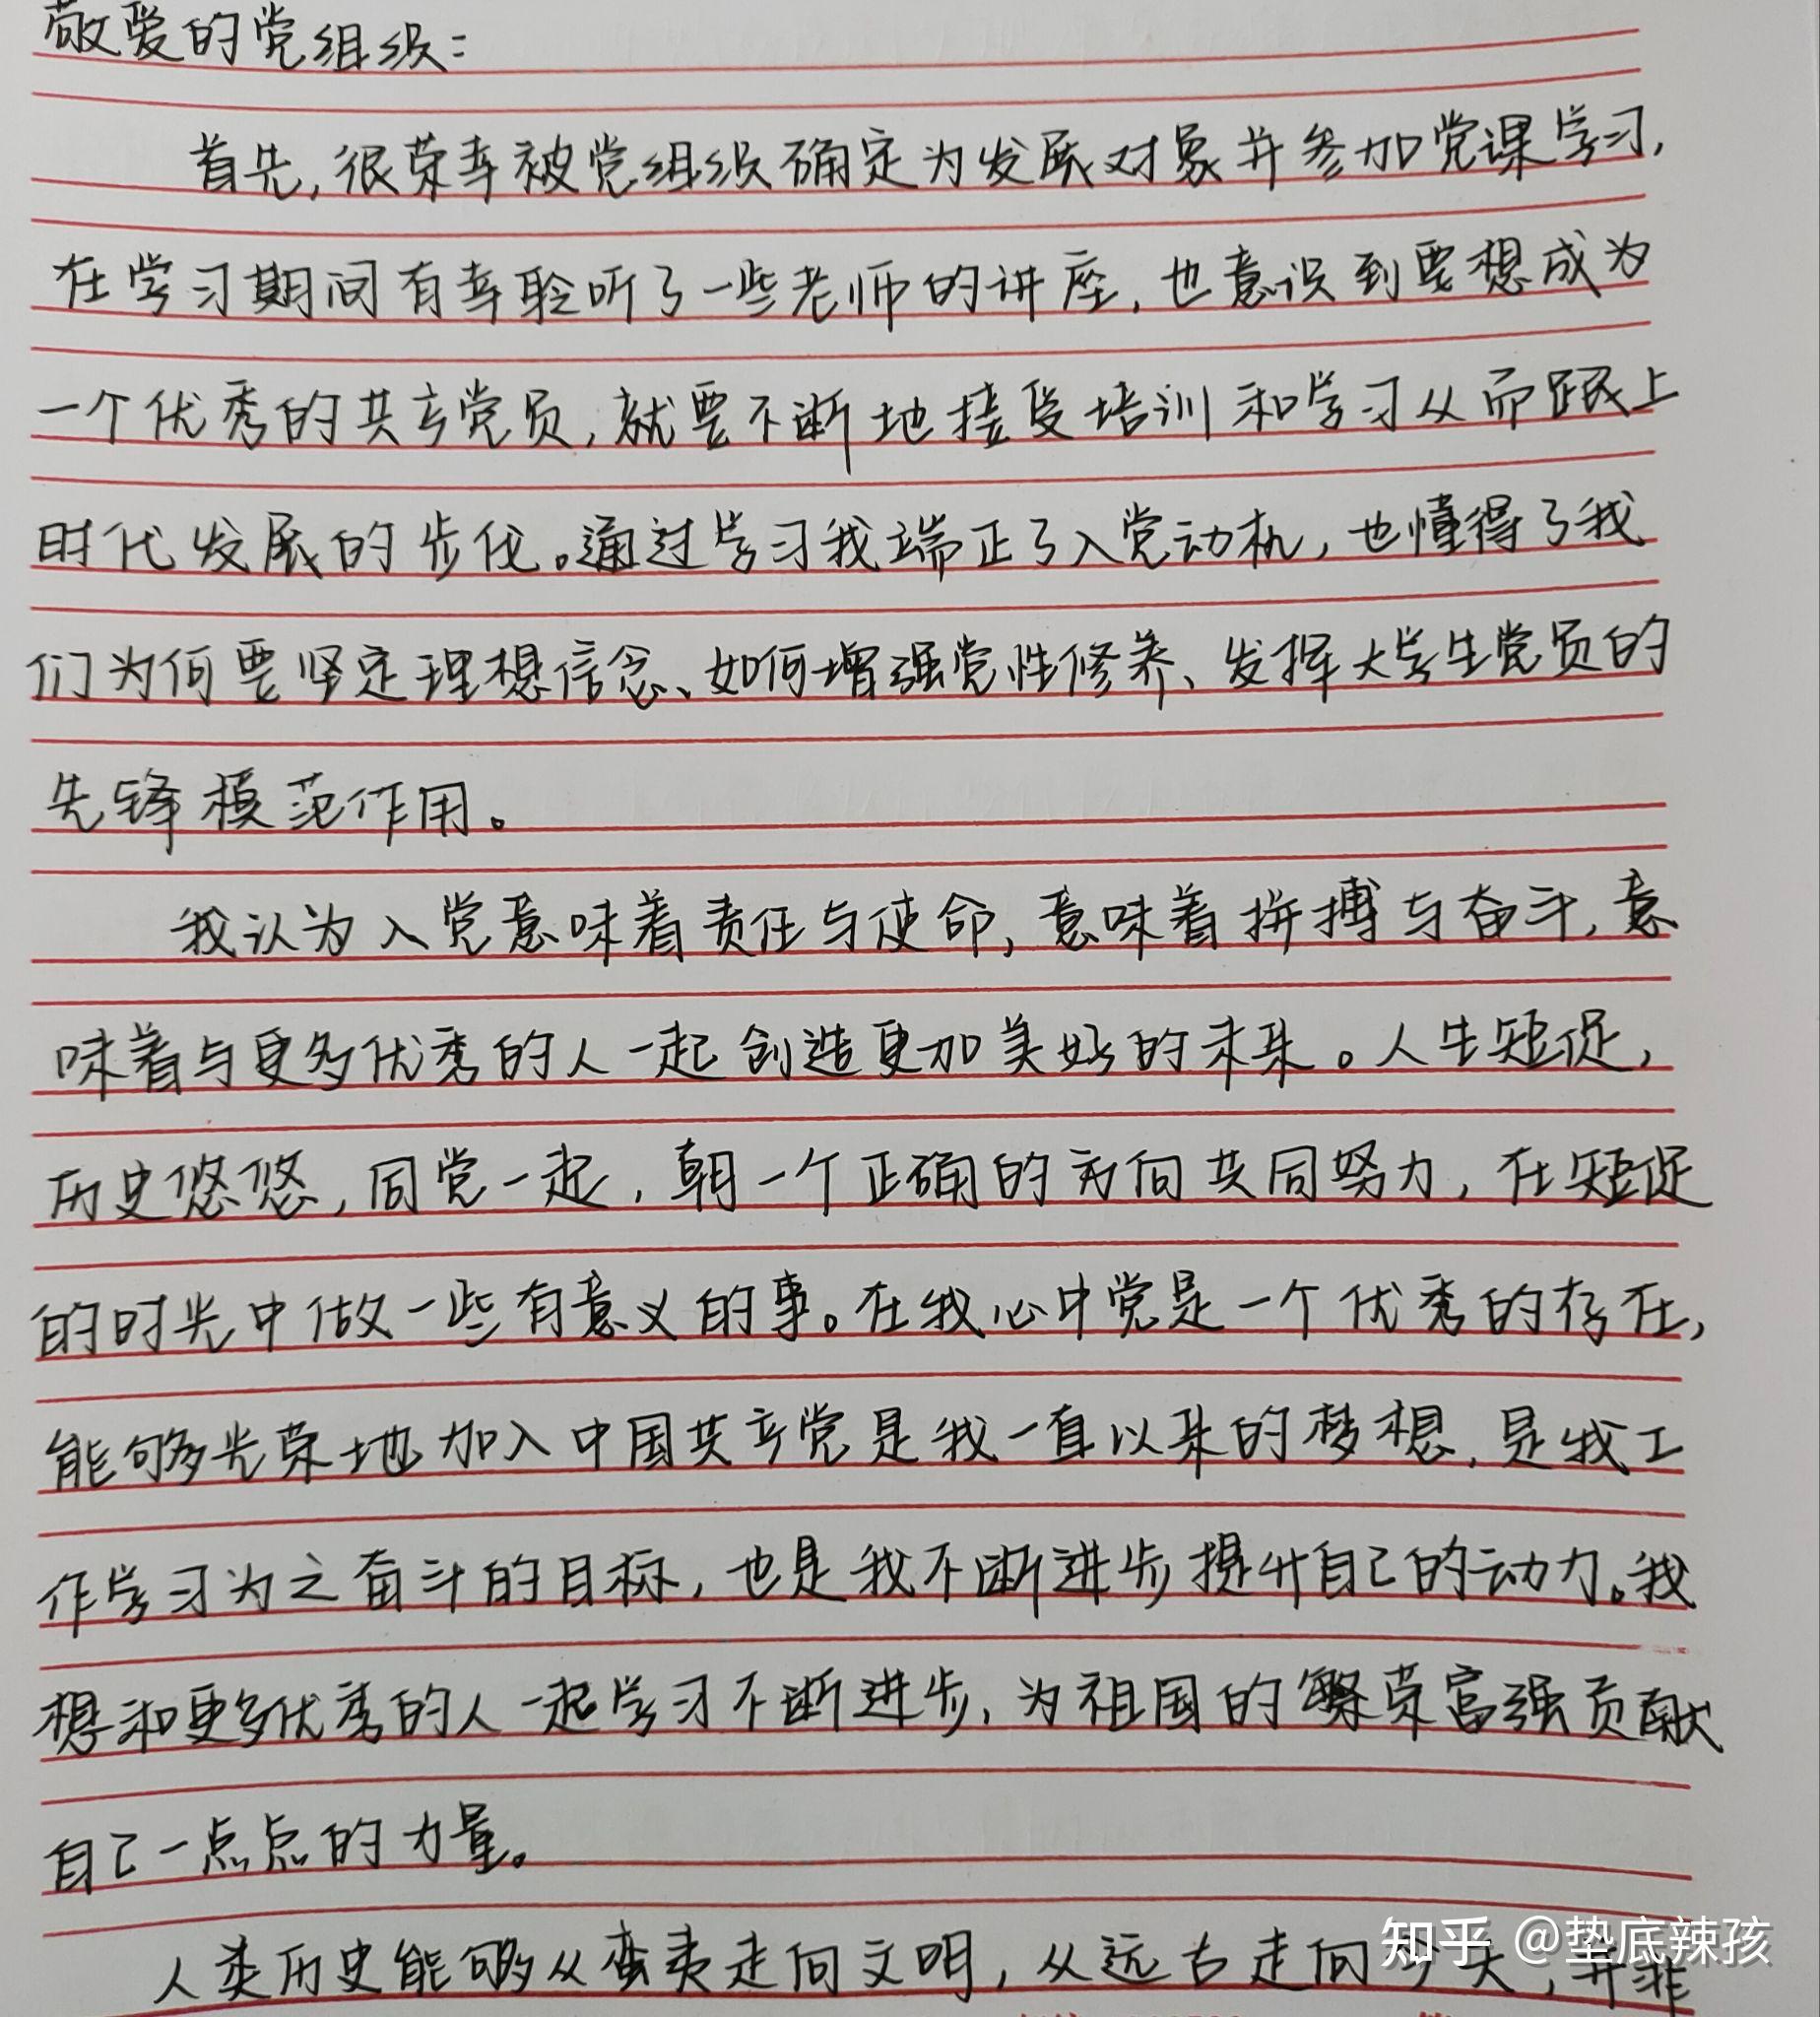 敬爱的党组织：
首先，很荣幸被党组织确定为发展对象并参加党课学习，
在学习期间有幸聆听了一些老师的讲座，也意识到要想成为
一个优秀的共产党员，就要不断地接受培训和学习从而跟上
时代发展的步伐。通过学习我端正了入党动机，也懂得了我
们为何要坚定理想信念、如何增强党性修养、发挥大学生党员的
先锋模范作用。
我认为入党意味着责任与使命，意味着拼搏与奋斗，意
味着与更多优秀的人一起创造更加美好的未来。人生短促，
历史悠悠，同党一起，朝一个正确的方向共同努力，在短促
的时光中做一些有意义的事。在我心中党是一个优秀的存在，
能够光荣地加入中国共产党是我一直以来的梦想，是我工
作学习为之奋斗的目标，也是我不断进步提升自己的动力。我
想和更多优秀的人一起学习不断进步，为祖国的繁荣富强贡献
自己一点点的力量。
人类历史能够从蛮夷走向文明，从远古走向今天，并非
知乎 @垫底辣孩